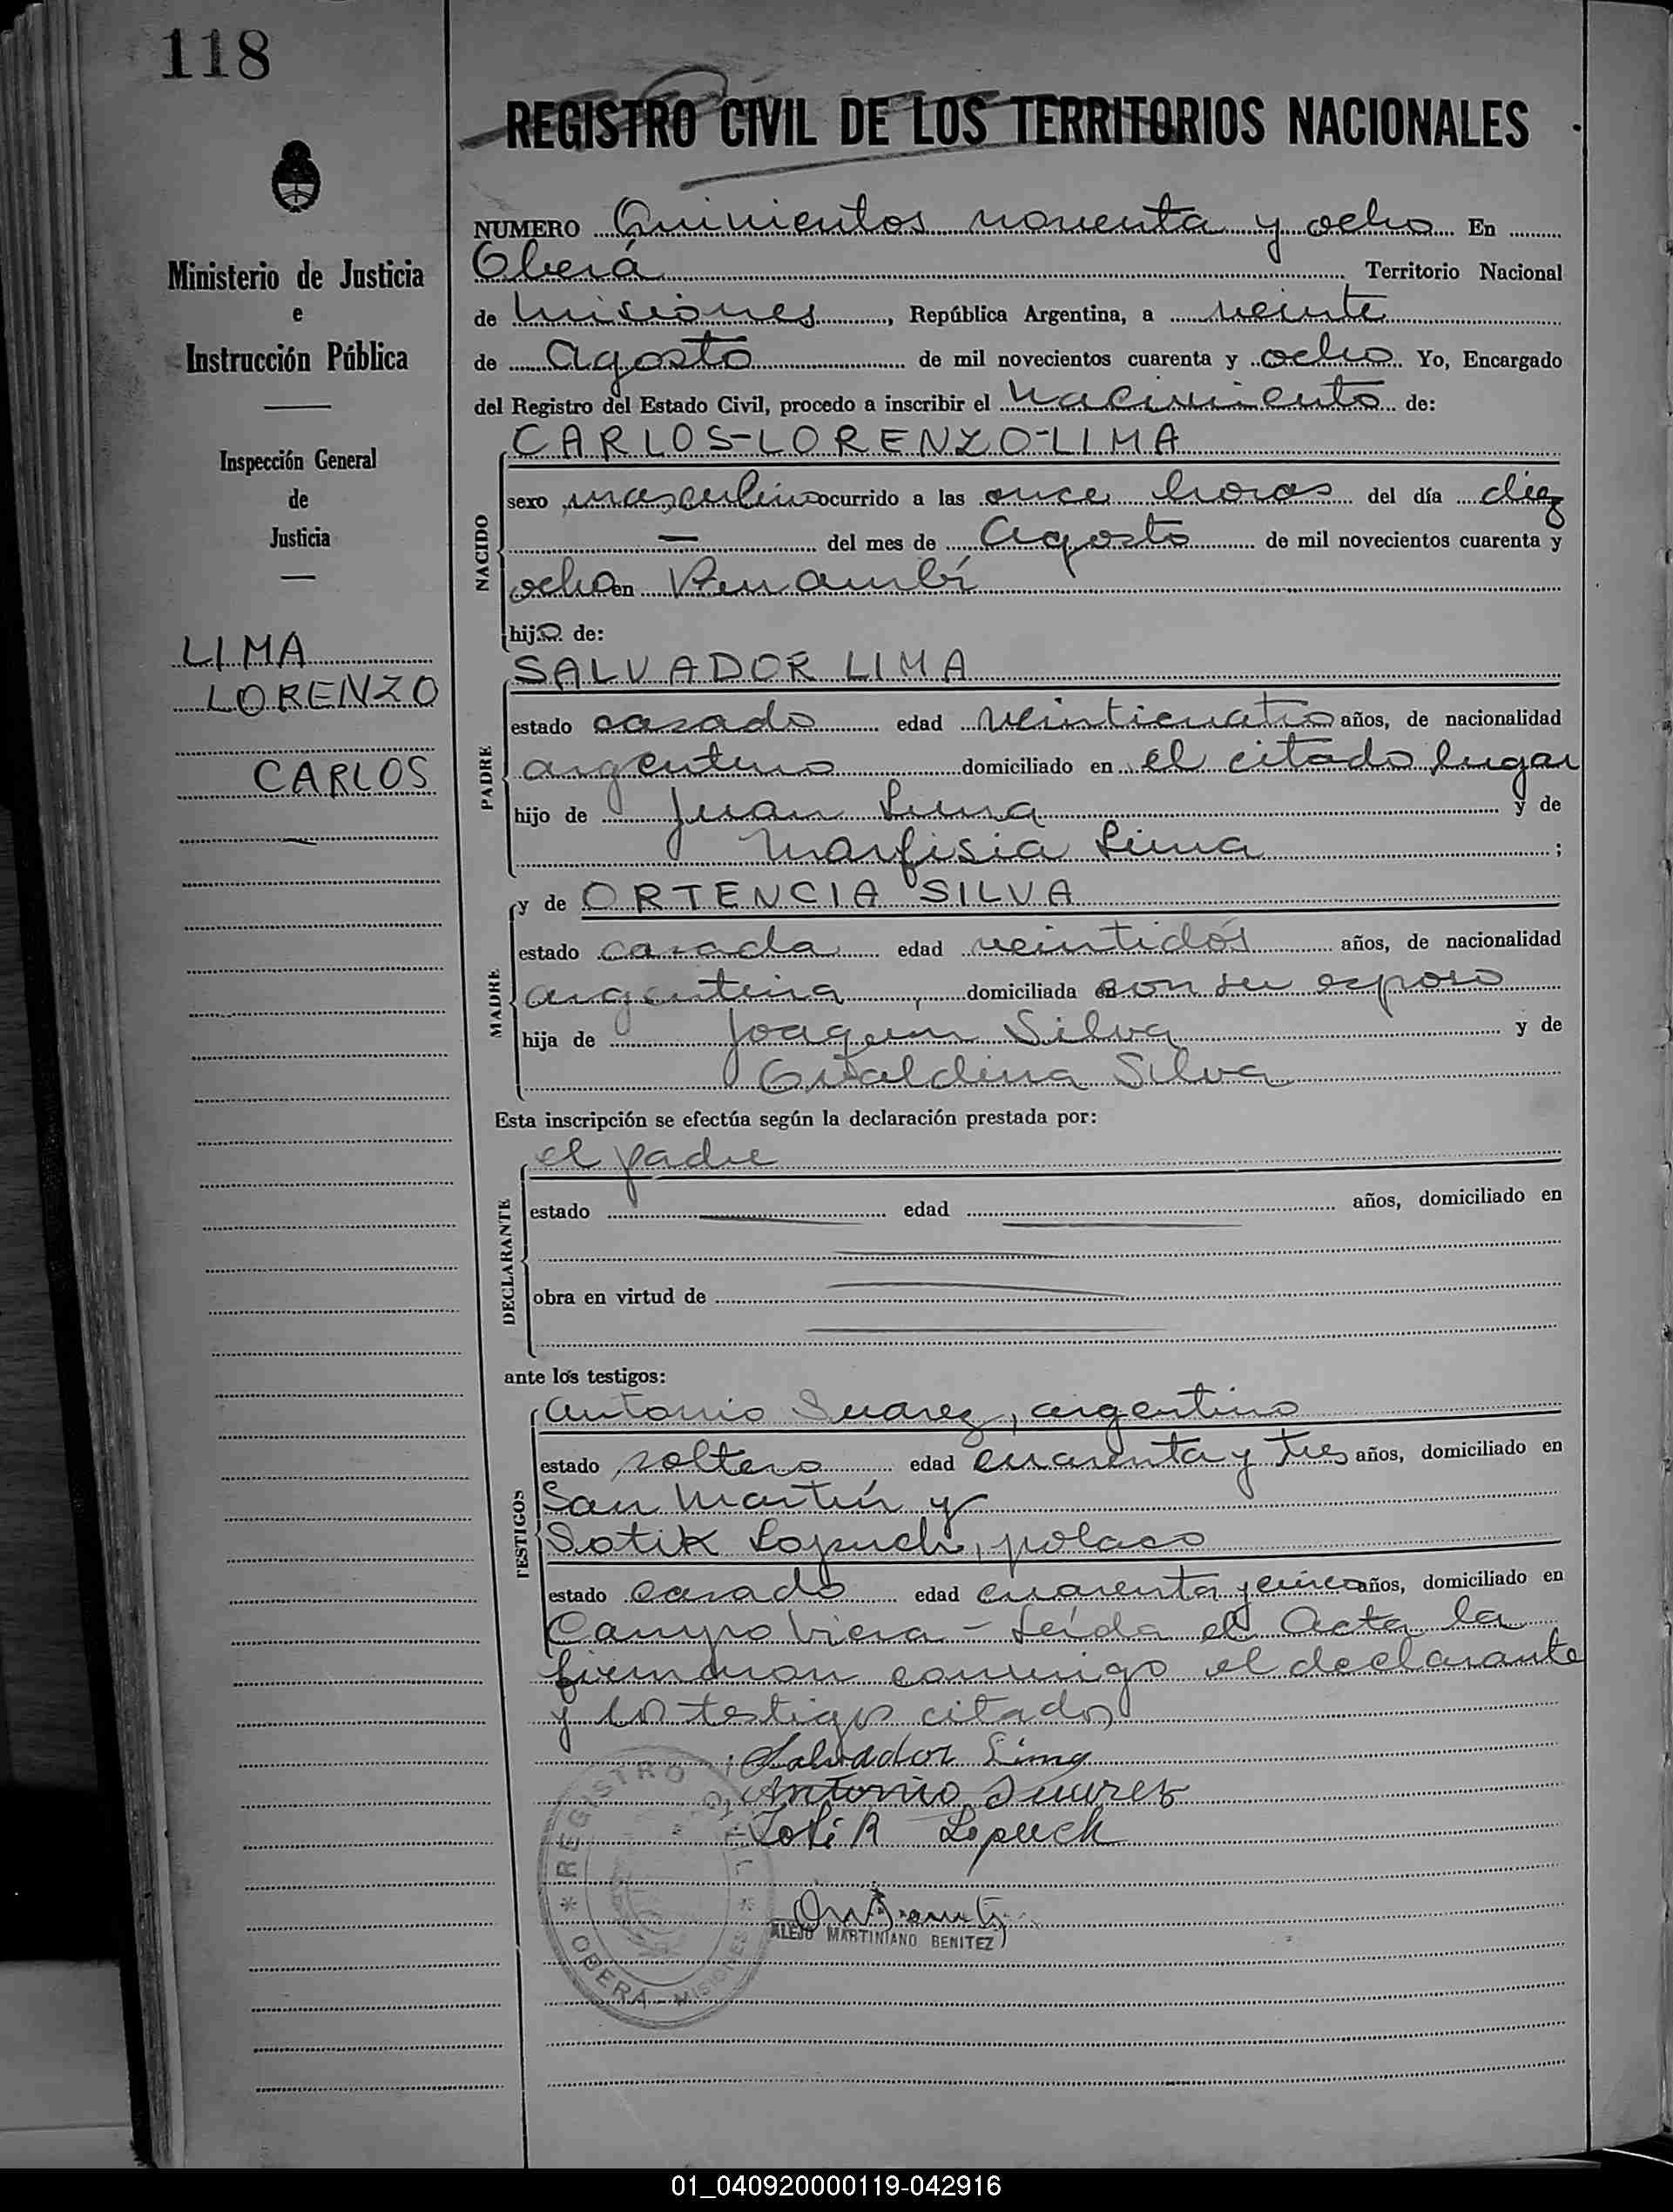 118
REGISTRO CIVIL DE LOS TERRITORIOS NACIONALES
Ministerio de Justicia
e
Instrucción Pública
Inspección General
de
Justicia
LIMA
LORENZO
CARLOS
NUMERO Quinientos noventa y ocho En
Oberá Territorio Nacional
de Misiones, República Argentina, a veinte
de Agosto de mil novecientos cuarenta y ocho Yo, Encargado
del Registro del Estado Civil, procedo a inscribir el Nacimiento de:
CARLOS-LORENZO-LIMA
NACIDO
sexo masculino ocurrido a las once horas del día diez
— del mes de Agosto de mil novecientos cuarenta y
ocho en Panambí
hijo de:
SALVADOR LIMA
PADRE
estado casado edad veinticuatro años, de nacionalidad
argentino domiciliado en el citado lugar
hijo de Juan Lima y de
Marfisia Lima ;
y de ORTENCIA SILVA
MADRE
estado casada edad veintidós años, de nacionalidad
argentina, domiciliada con su esposo
hija de Joaquin Silva y de
Silva
Esta inscripción se efectúa según la declaración prestada por:
el padre
DECLARANTE
estado edad años, domiciliado en
obra en virtud de
ante los testigos:
Antonio Suarez, argentino
TESTIGOS
estado soltero edad cuarenta y tres años, domiciliado en
San Martín y
Sotik Lopuch, polaco
estado casado edad cuarenta y cinco años, domiciliado en
Campo Viera - Leída el Acta la
firmaron conmigo el declarante
y los testigos citados
Salvador Lima
Antonio Suarez
Lopuch
ALEJO MARTINIANO BENITEZ
REGISTRO
OBERA - MISIONES
01_040920000119-042916